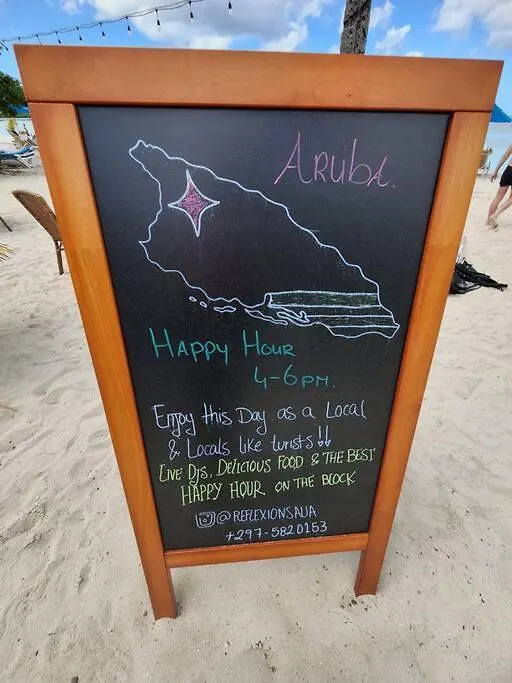 Aruba.
Happy Hour
4-6pm.
Enjoy this Day as a Local
& Locals like turists!!
Live Djs, Delicious Food & the Best
Happy Hour on the Block
@REFLEXIONSAUA
+297-5820153